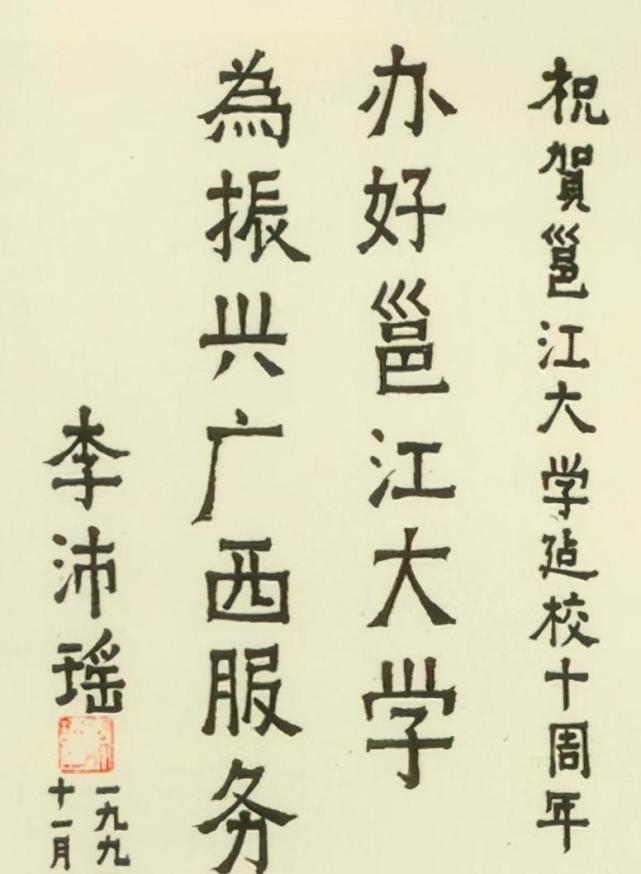 祝賀邕江大学建校十周年
办好邕江大学
為振兴广西服务
李沛瑶
一九九
十一月